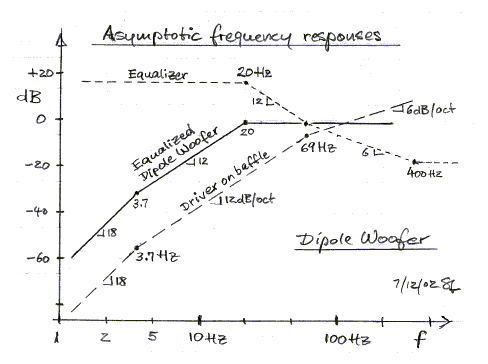 Asymptotic frequency responses
+20
dB
0
-20
-40
-60
Equalizer
20Hz
12
6dB/oct
Equalized
Dipole Woofer
12
20
69Hz
6
400Hz
Driver on baffle
12dB/oct
3.7
18
3.7Hz
18
Dipole Woofer
7/12/02 SL
1
2
5
10Hz
100Hz
f